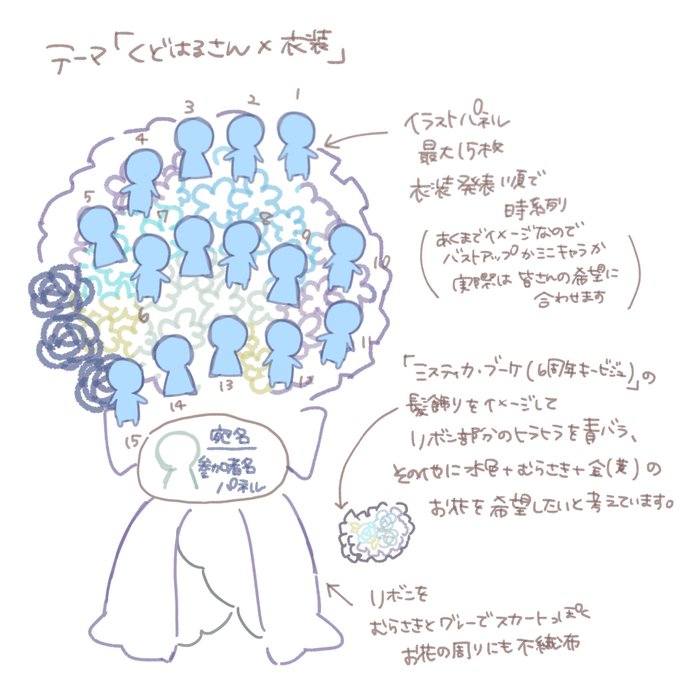 テーマ「くどはるさん×衣装」
1
2
3
4
5
7
8
9
10
6
11
12
13
14
15
イラストパネル
最大15枚
衣装発表順で
時系列
(あくまでイメージなので
バストアップかミニキャラか
実際は皆さんの希望に
合わせます)
「ミスティカ・ブーケ(6周年キービジュ)」の
髪飾りをイメージして
リボン部分のヒラヒラを青バラ、
その他に水色+むらさき+金(黄)の
お花を希望したいと考えています。
宛名
参加者名
パネル
リボンを
むらさきとグレーでスカートっぽく
お花の周りにも不織布